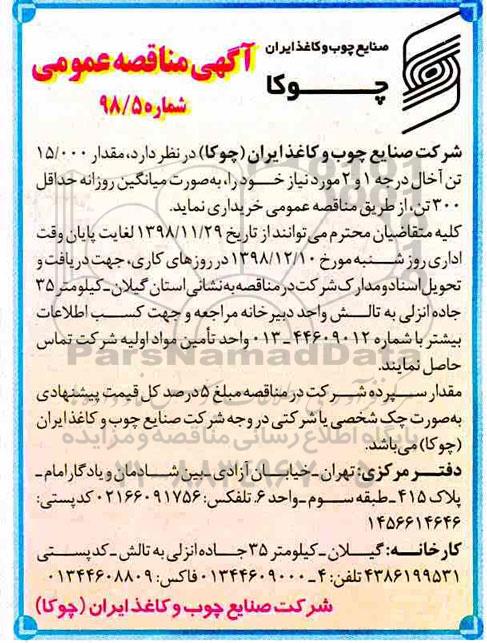 صنایع چوب و کاغذ ایران
چوکا
آگهی مناقصه عمومی
شماره ۹۸/۵
شرکت صنایع چوب و کاغذ ایران (چوکا) در نظر دارد، مقدار ۱۵/۰۰۰
تن آخال درجه ۱ و ۲ مورد نیاز خود را، به‌صورت میانگین روزانه حداقل
۳۰۰ تن، از طریق مناقصه عمومی خریداری نماید.
کلیه متقاضیان محترم می‌توانند از تاریخ ۱۳۹۸/۱۱/۲۹ لغایت پایان وقت
اداری روز شنبه مورخ ۱۳۹۸/۱۲/۱۰ در روزهای کاری، جهت دریافت و
تحویل اسناد و مدارک شرکت در مناقصه به نشانی استان گیلان - کیلومتر ۳۵
جاده انزلی به تالش واحد دبیرخانه مراجعه و جهت کسب اطلاعات
بیشتر با شماره ۴۴۶۰۹۰۱۲ - ۰۱۳ واحد تأمین مواد اولیه شرکت تماس
حاصل نمایند.
ParsNamadData
مقدار سپرده شرکت در مناقصه مبلغ ۵ درصد کل قیمت پیشنهادی
به‌صورت چک شخصی یا شرکتی در وجه شرکت صنایع چوب و کاغذ ایران
(چوکا) می‌باشد.
پایگاه اطلاع رسانی مناقصه و مزایده
دفتر مرکزی: تهران - خیابان آزادی - بین شادمان و یادگار امام -
پلاک ۴۱۵ - طبقه سوم - واحد ۶. تلفکس: ۰۲۱۶۶۰۹۱۷۵۶ کدپستی:
۱۴۵۶۶۱۴۶۴۶
کارخانه: گیلان - کیلومتر ۳۵ جاده انزلی به تالش - کدپستی
۴۳۸۶۱۹۹۵۳۱ تلفن: ۴ - ۰۱۳۴۴۶۰۹۰۰۰ فاکس: ۰۱۳۴۴۶۰۸۸۰۹
شرکت صنایع چوب و کاغذ ایران (چوکا)